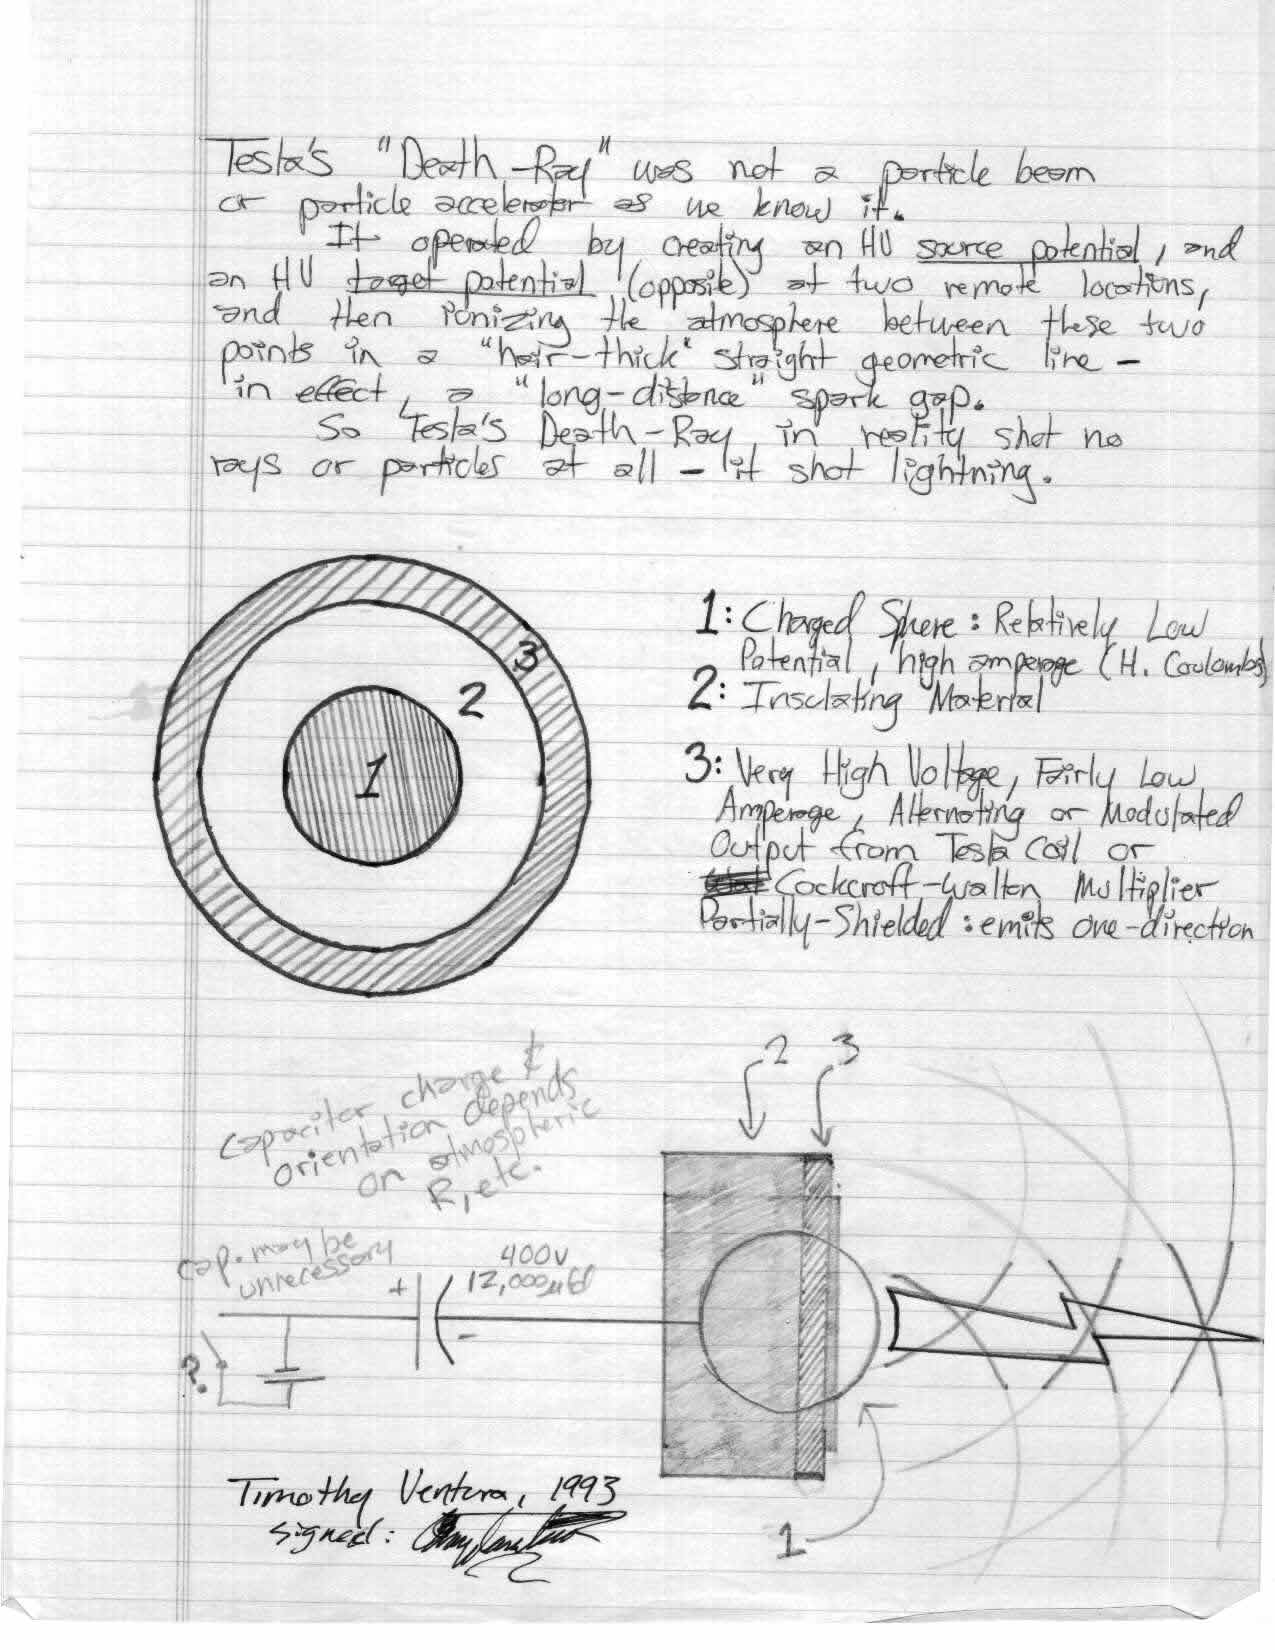 Tesla's "Death-Ray" was not a particle beam
or particle accelerator as we know it.
It operated by creating an HV source potential, and
an HV target potential (opposite) at two remote locations,
and then ionizing the atmosphere between these two
points in a "hair-thick" straight geometric line -
in effect, a "long-distance" spark gap.
So Tesla's Death-Ray, in reality shot no
rays or particles at all - it shot lightning.
1: Charged Sphere: Relatively Low
Potential, high amperage (H. Coulombs)
2: Insulating Material
3: Very High Voltage, Fairly Low
Amperage, Alternating or Modulated
Output from Tesla Coil or
Cockcroft-Walton Multiplier
Partially-Shielded: emits one-direction
3
2
1
2 3
capaciter charge &
orientation depends
on atmospheric
R, etc.
cap. may be
unnecessary
400v
12,000µfd
+
-
?
1
Timothy Ventura, 1993
signed: